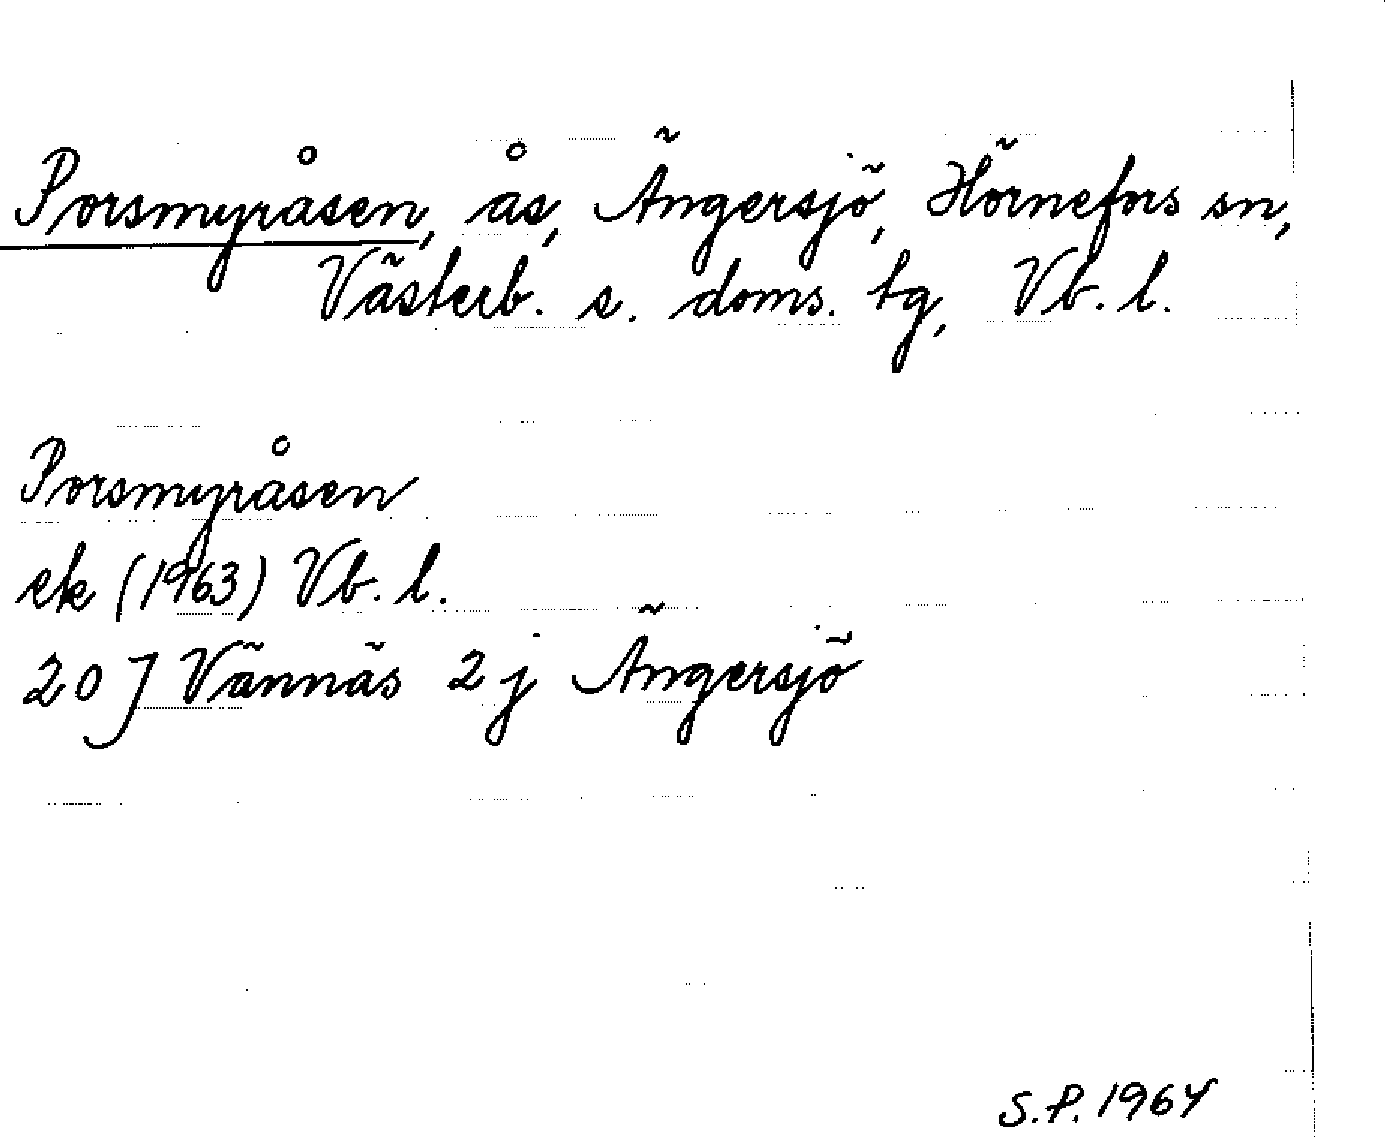 Porsmyråsen, ås, Ängersjö, Hörnefors sn,
Västerb. s. doms. tg, Vb. l.
Porsmyråsen
ek (1963) Vb. l.
20 J Vännäs 2 j Ängersjö
S.P. 1964